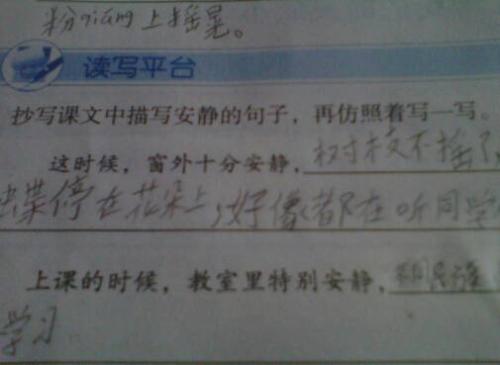 粉qiang上摇晃。
读写平台
抄写课文中描写安静的句子，再仿照着写一写。
这时候，窗外十分安静，树枝不摇了
蝶停在花朵上，好像都在听同学
上课的时候，教室里特别安静，
学习